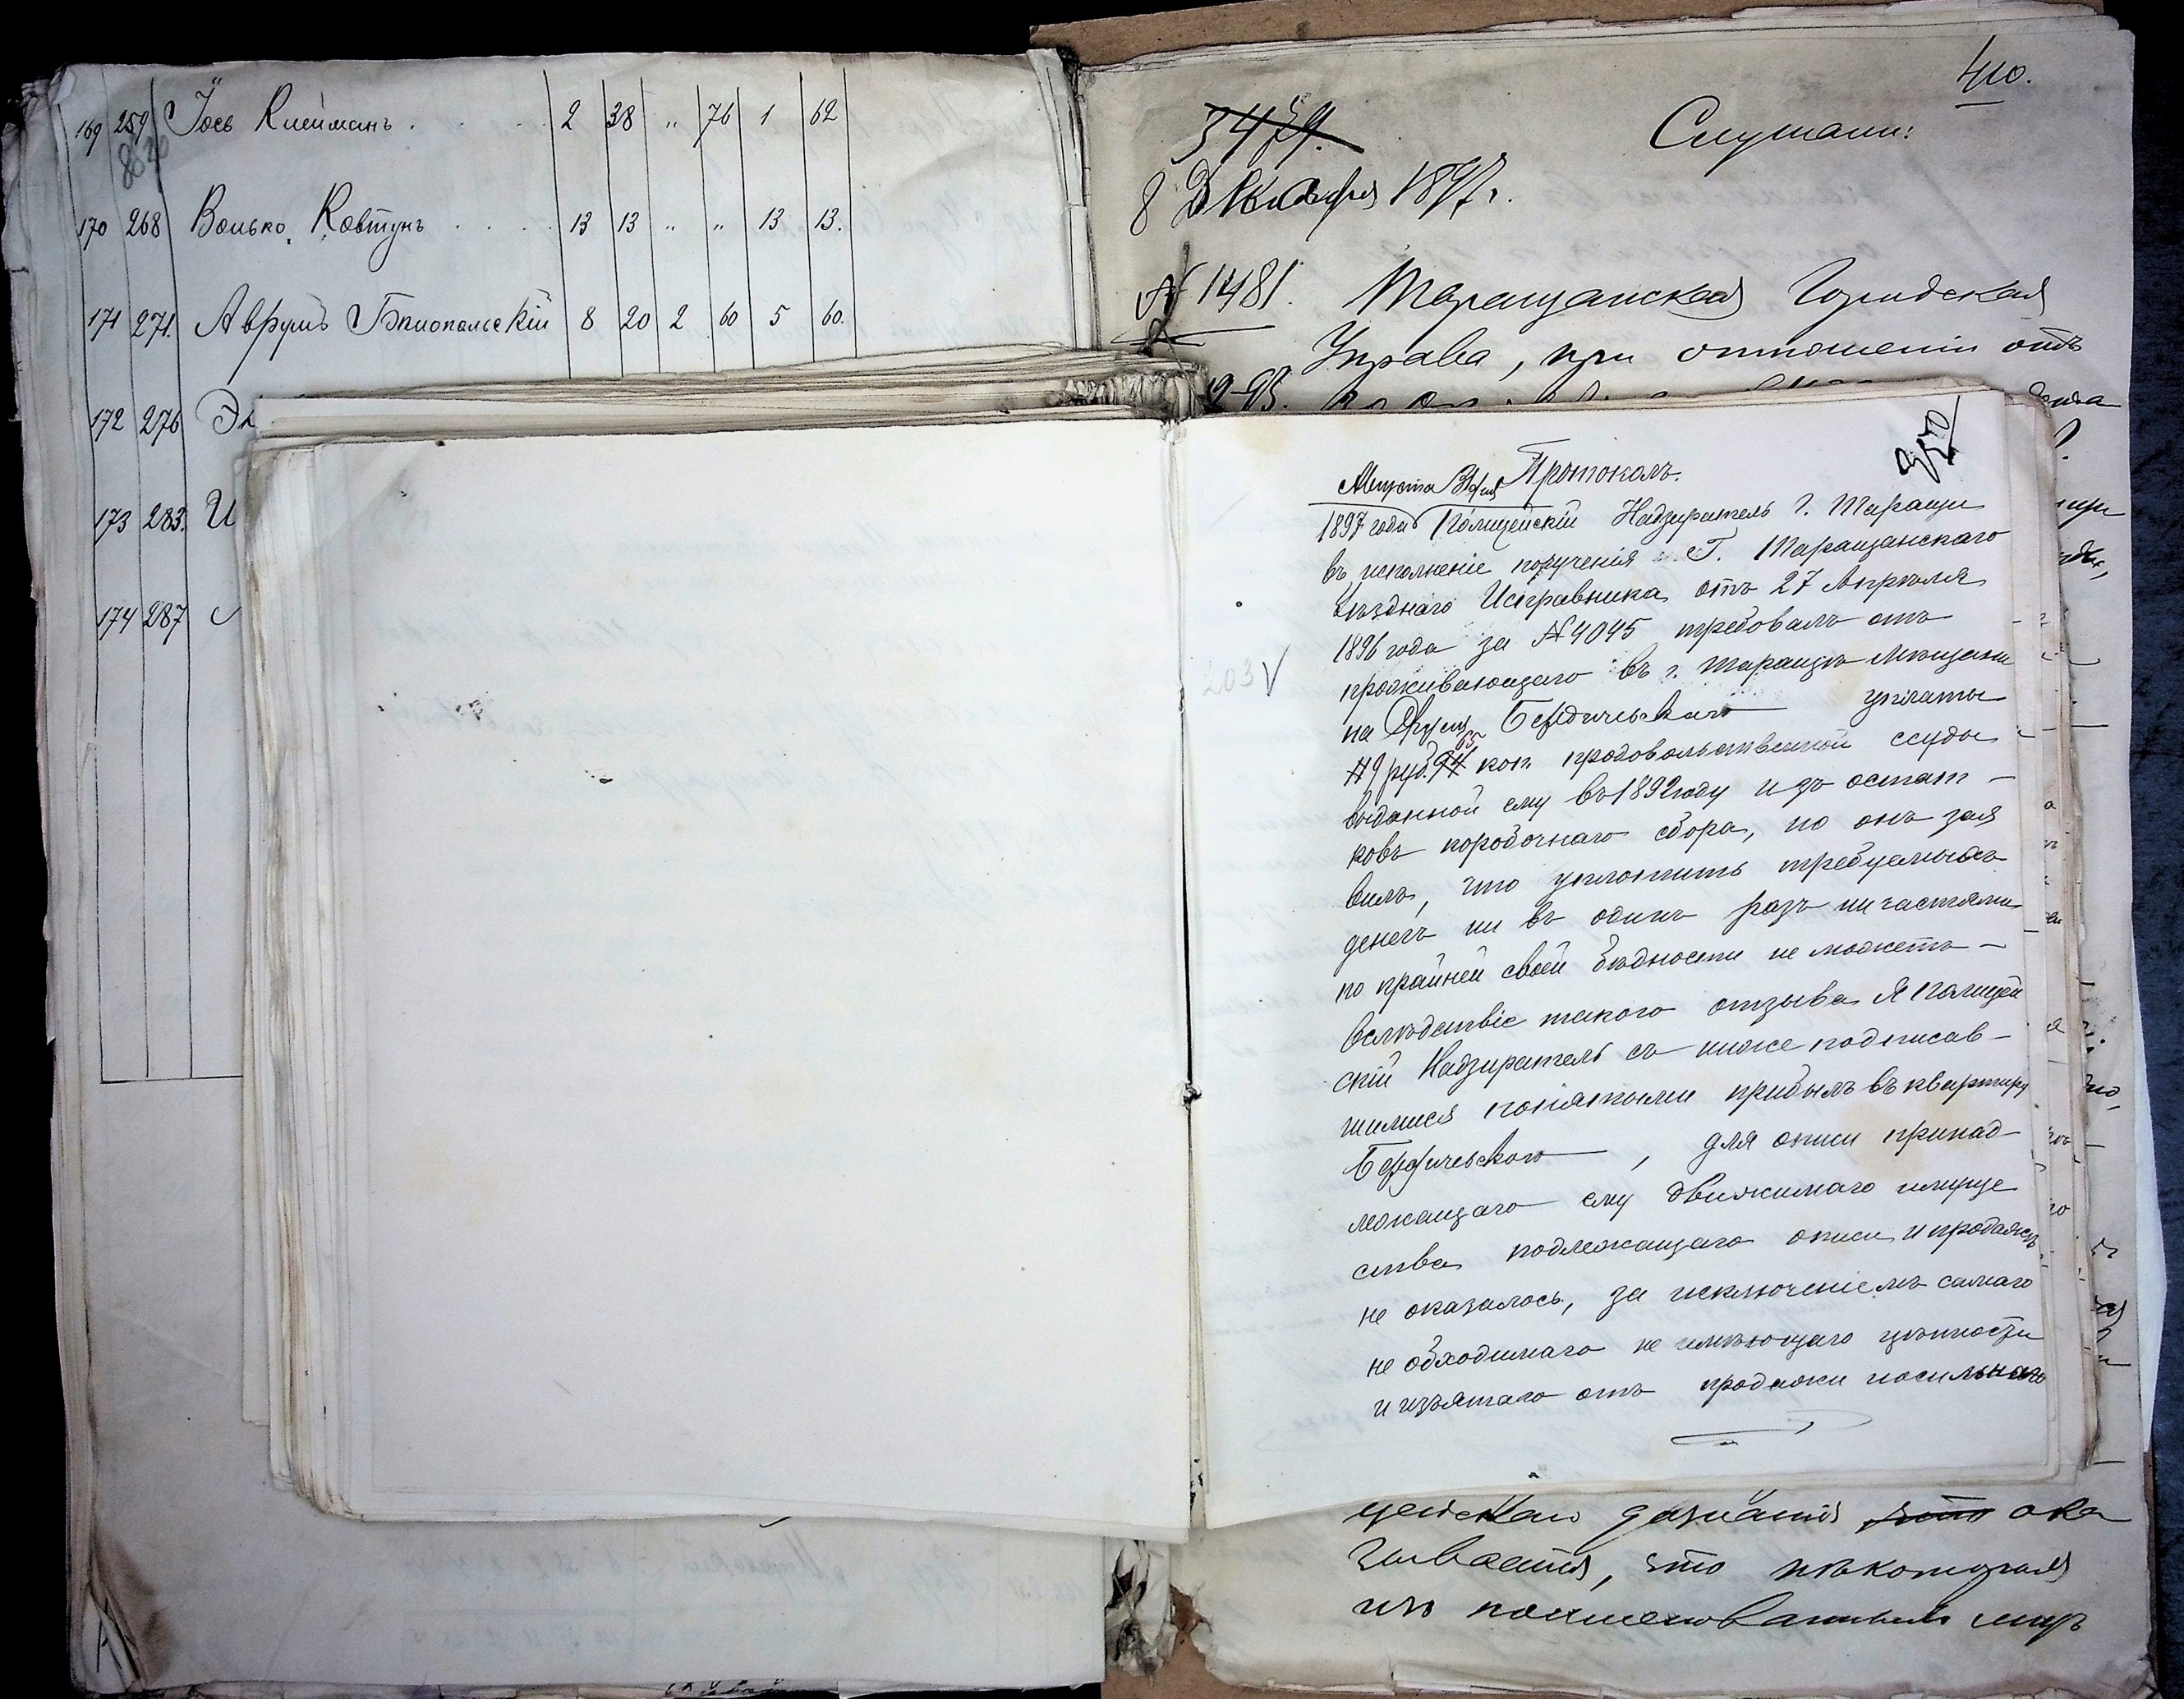 169 259 Іось Клейманъ . . . . 2 38 " 76 1 62
170 268 Волько Ковтунъ . . . . 13 13 " " 13 13.
171 271. Аврумъ Бялопольскій 8 20 2 60 5 60.
172 276
173 283. И
174 287
410.
3479.
Слушали:
8 Декабря 1897 г.
№ 1481. Таращанская Городская
Управа, при отношеніи отъ
Протоколъ.
Августа дня
1897 года Полицейскій Надзиратель г. Таращи
въ исполненіе порученія Г. Таращанскаго
Уѣзднаго Исправника отъ 27 Апрѣля
1896 года за № 4045 требовалъ отъ
проживающаго въ г. Таращѣ Мѣщани
на Бердичевскаго уплаты
9 руб. коп. продовольственной ссуды
выданной ему въ 1892 году изъ остат-
ковъ коробочнаго сбора, но онъ зая
вилъ, что уплатить требуемыхъ
денегъ ни въ одинъ разъ ни частями
по крайней своей бѣдности не можетъ —
Вслѣдствіе такого отзыва Я Полицей
скій Надзиратель съ ниже подписав-
шимися понятыми прибылъ въ квартиру
Бердичевскаго , для описи принад-
лежащаго ему движимаго имуще
ства подлежащаго описи и продажѣ
не оказалось, за исключеніемъ самаго
не обходимаго не имѣющаго цѣнности
и изъятаго отъ продажи носильнаго
203 V
цейскаго дознанія что ока
зывается, что нѣкоторыя
изъ поименованныхъ лицъ